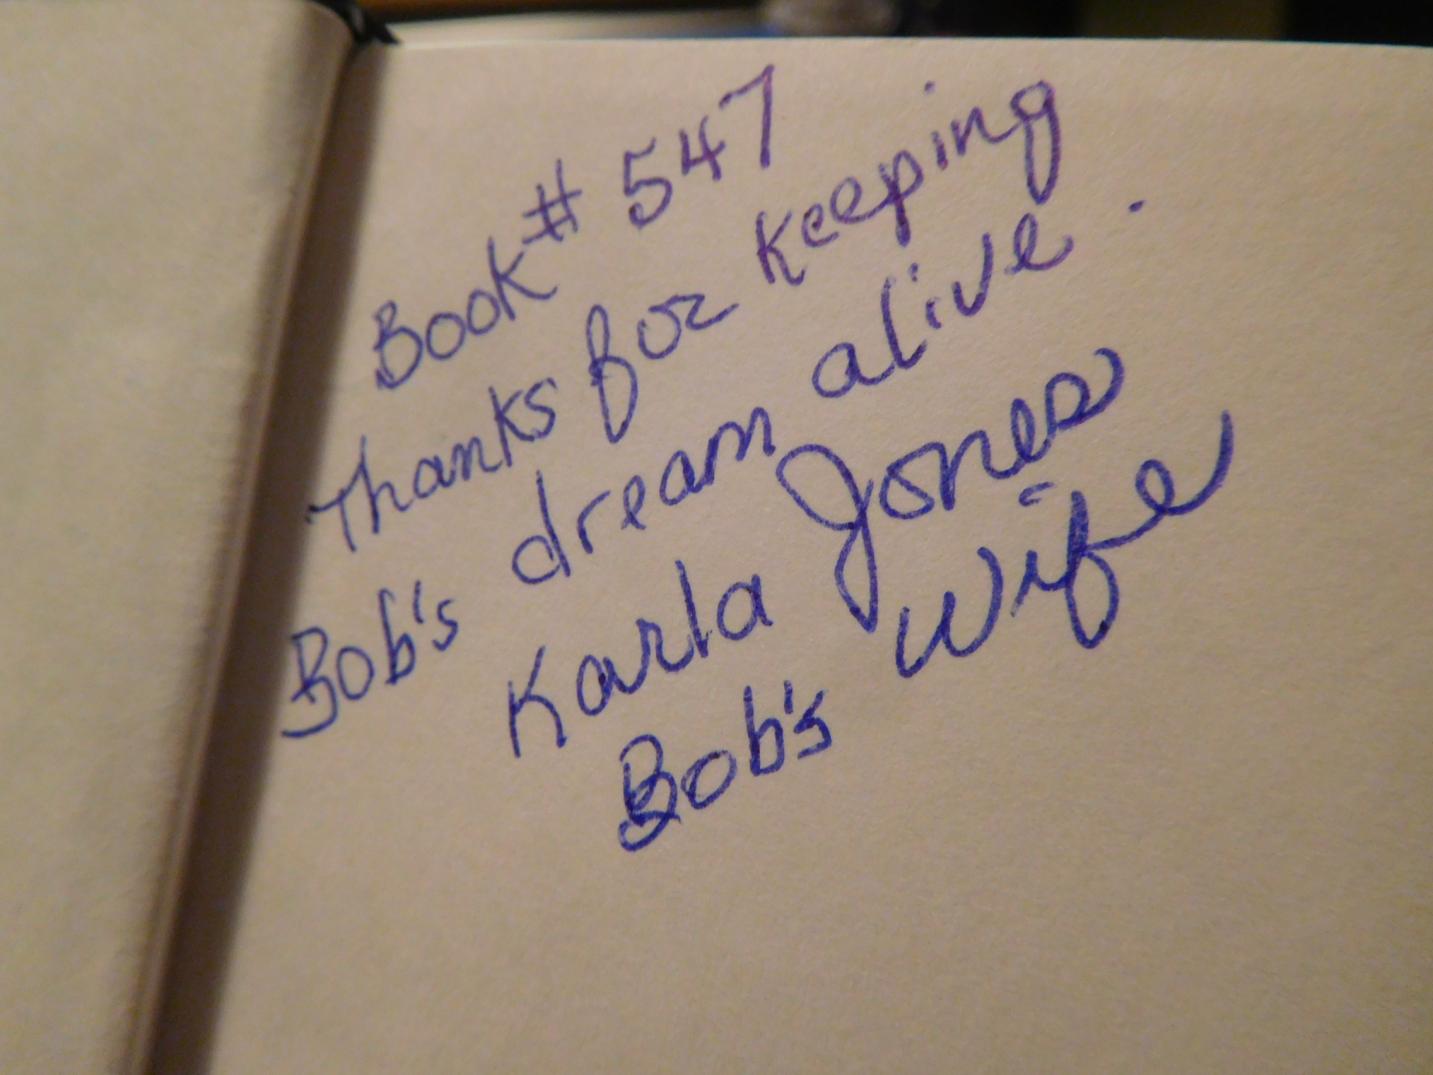 Book # 547
Thanks for keeping
Bob's dream alive.
Karla Jones
Bob's wife